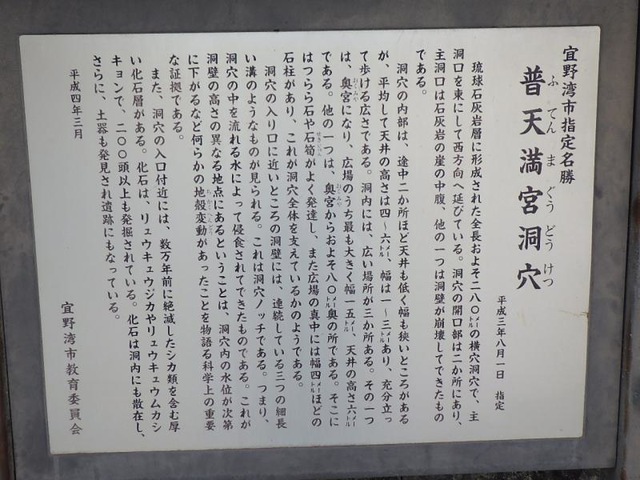 宜野湾市指定名勝
普天満宮洞穴
ふてんまぐうどうけつ
平成三年八月一日　指定
琉球石灰岩層に形成された全長およそ二八〇㍍の横穴洞穴で、主
洞口を東にして西方向へ延びている。洞穴の開口部は二か所にあり、
主洞口は石灰岩の崖の中腹、他の一つは洞壁が崩壊してできたもの
である。
洞穴の内部は、途中二か所ほど天井も低く幅も狭いところがある
が、平均して天井の高さは四～六㍍、幅は一～三㍍あり、充分立っ
て歩ける広さである。洞内には、広い場所が三か所ある。その一つ
は、奥宮になり、広場のうち最も大きく幅一五㍍、天井の高さ六㍍
である。他の一つは、奥宮からおよそ八〇㍍奥の所である。そこに
はつらら石や石筍がよく発達し、また広場の真中には幅四㍍ほどの
石柱があり、これが洞穴全体を支えているかのようである。
洞穴の入り口に近いところの洞壁には、連続している三つの細長
い溝のようなものが見られる。これは洞穴ノッチである。つまり、
洞穴の中を流れる水によって侵食されてできたものである。これが
洞壁の高さの異なる地点にあるということは、洞穴内の水位が次第
に下がるなど何らかの地殻変動があったことを物語る科学上の重要
な証拠である。
また、洞穴の入口付近には、数万年前に絶滅したシカ類を含む厚
い化石層がある。化石は、リュウキュウジカやリュウキュウムカシ
キョンで、二〇〇頭以上も発掘されている。化石は洞内にも散在し、
さらに、土器も発見され遺跡にもなっている。
平成四年三月
宜野湾市教育委員会